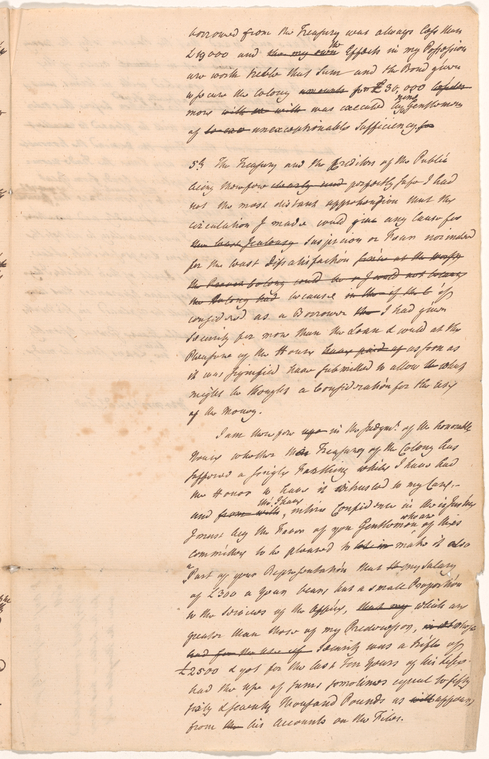 borrowed from the Treasury was always less than
£19000 and the my own the Effects in my Possession
are worth treble that Sum and the Bond given
to secure the Colony amounts for £30,000
more was executed by nine Gentlemen
of unexceptionable Sufficiency
5th The Treasury and the Creditors of the Public
being therefore perfectly safe I had
not the most distant apprehension that the
circulation I made would give any Cause for
the least Jealousy Suspicion or Fears nor indeed
for the least dissatisfaction
the Colony had because if
considered as a Borrower I had given
Security for more than the Loan & would at the
Pleasure of the House have paid as soon as
it was signified have submitted to allow what
might be thought a Consideration for the use
of the money.
I am therefore in the Judgmt. of the honorable
House whether the Treasury of the Colony has
suffered a single Farthing whilst I have had
the Honor to have it intrusted to my Care,
and from with, the I have intire Confidence in the is Justice
I must beg the Favor of you Gentlemen of this
committee to be pleased to make it also
a Part of your Representation that my Salary
of £300 a Year bears but a small Proportion
to the Services of the Office, that my which are
greater than those of my Predecessor, whose
and for the use of Security was a trifle of
£2500 & yet for the last Ten Years of his Life
had the use of Sums sometimes equal to fifty
sixty & seventy Thousand Pounds as will appear
from the his Accounts on the Files.